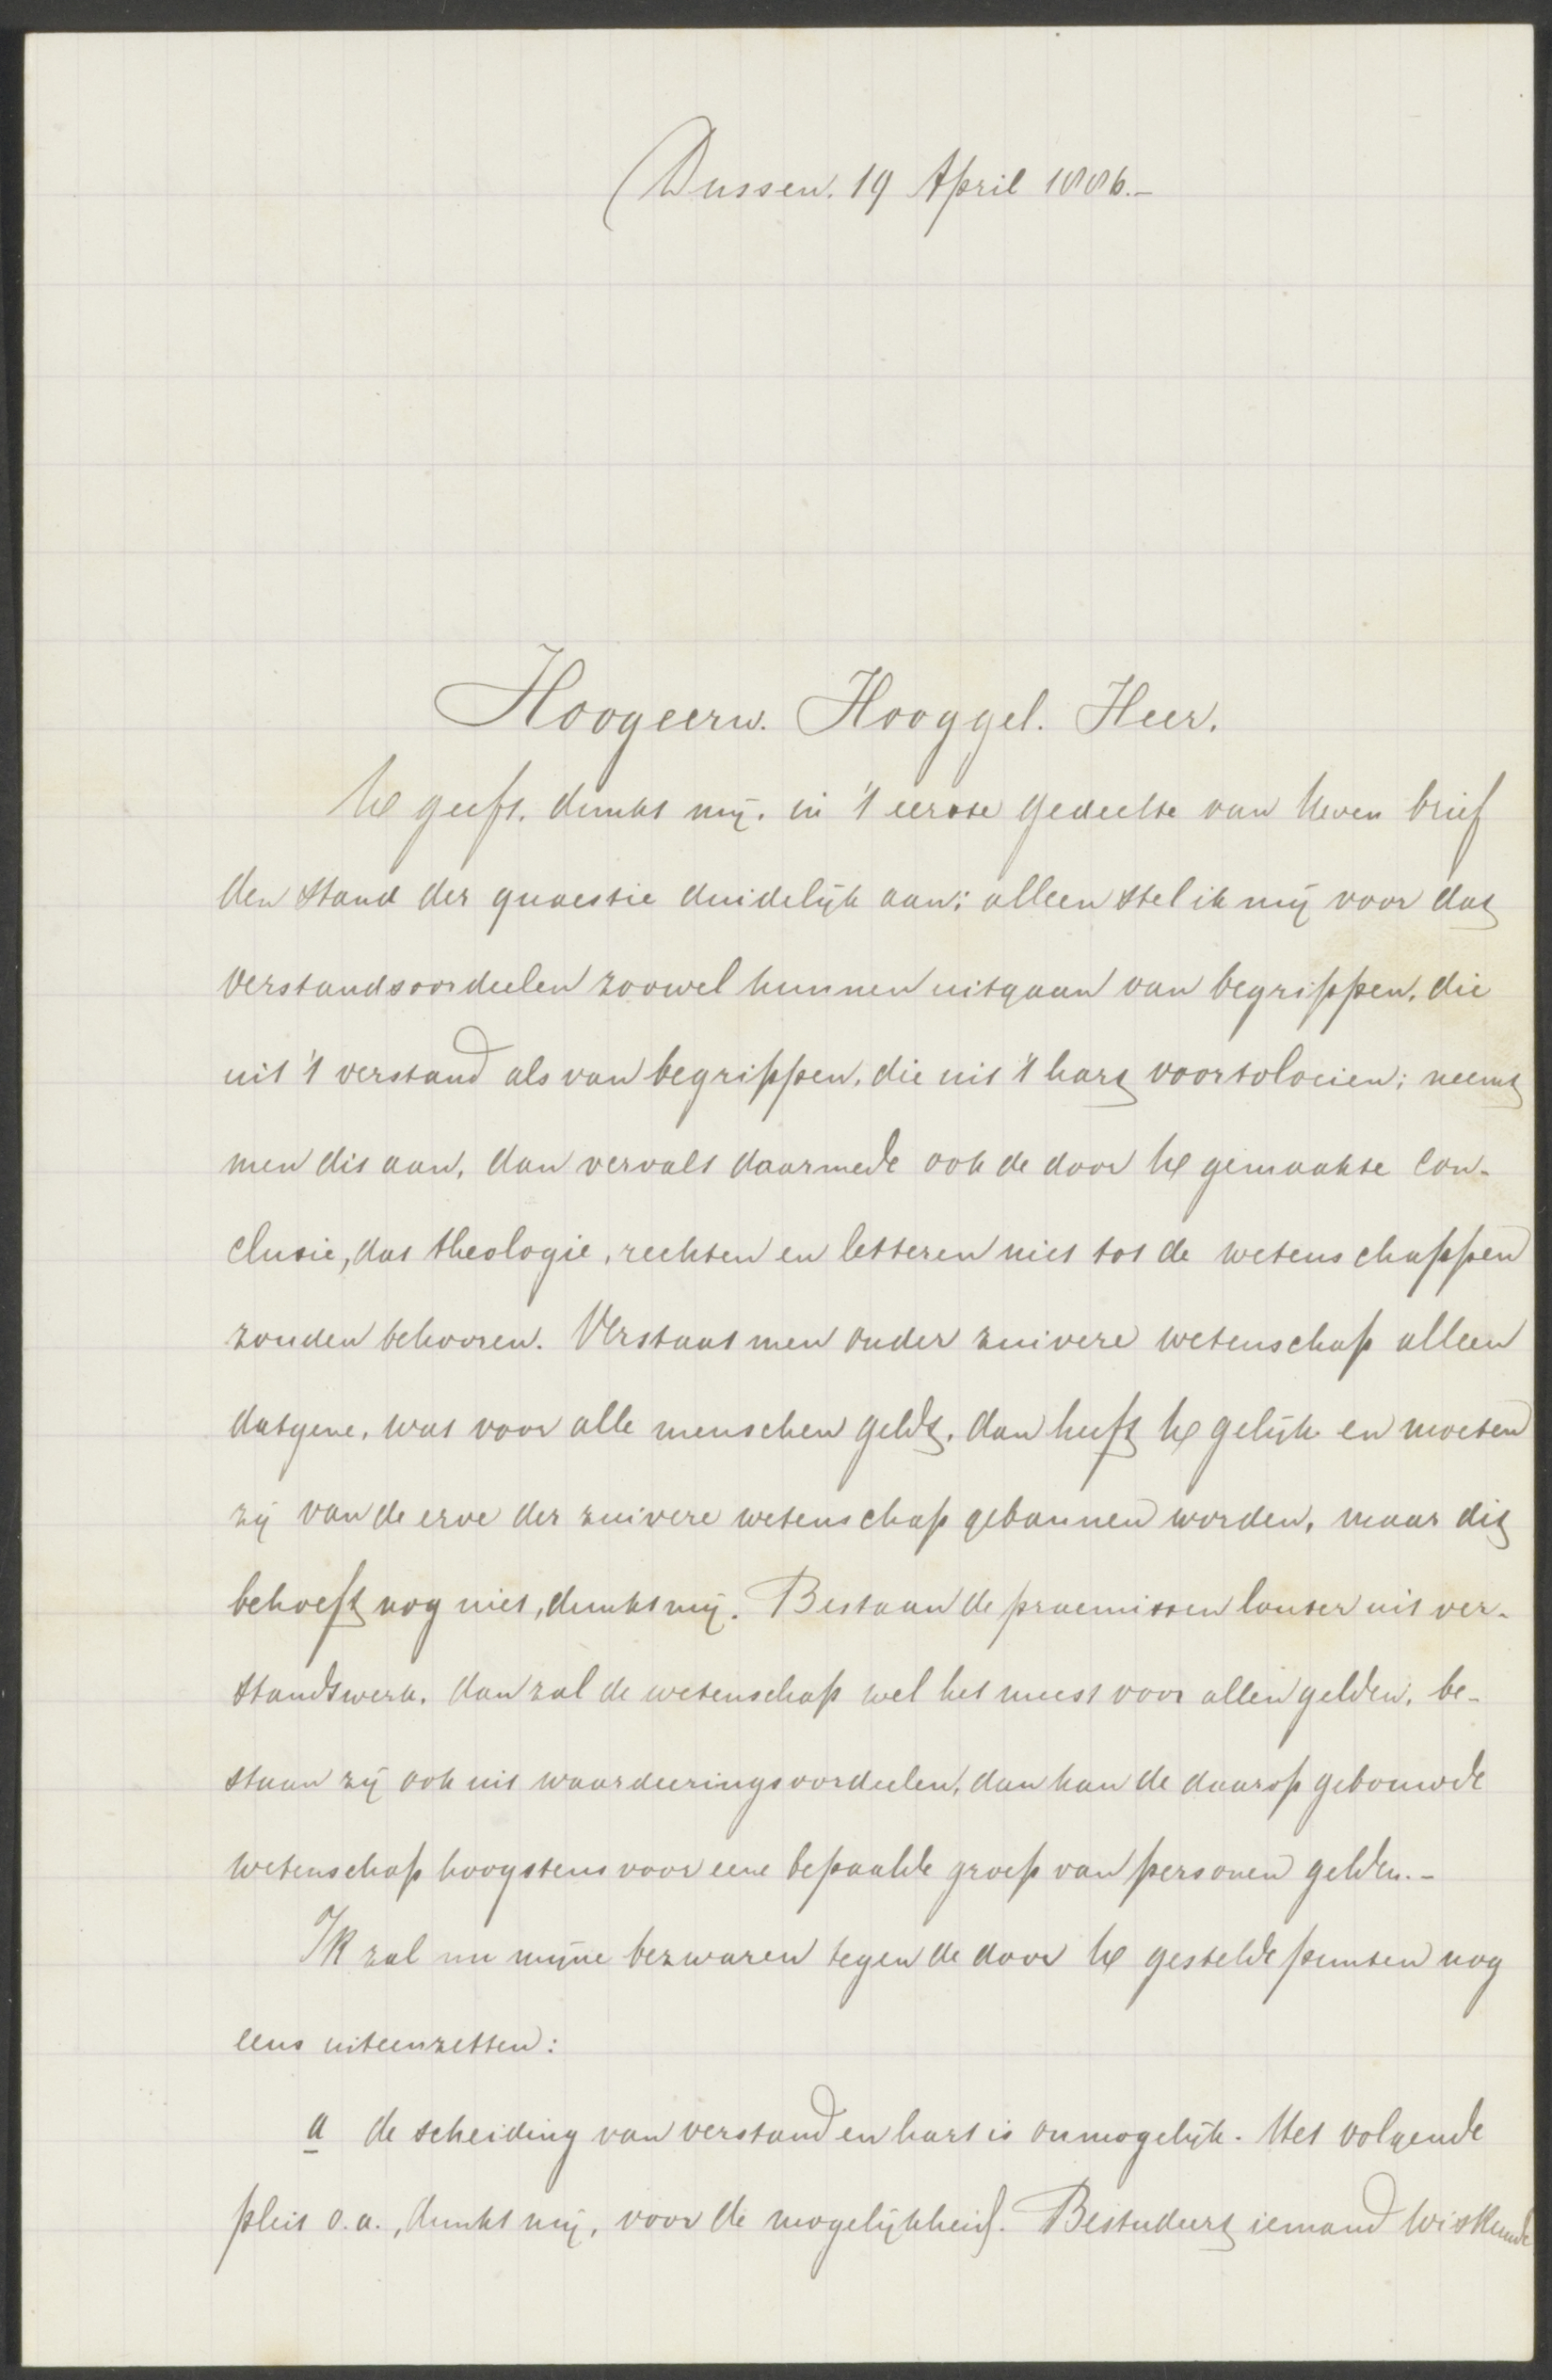 Dussen. 19 April 1886.-
Hoogeerw. Hooggel. Heer.
U geeft, dunkt mij, in 't eerste gedeelte van Uwen brief
den stand der quaestie duidelijk aan; alleen stel ik mij voor dat
verstandsoordeelen zoowel kunnen uitgaan van begrippen, die
uit 't verstand als van begrippen, die uit 't hart voortvloeien; neemt
men dit aan, dan vervalt daarmede ook de door U gemaakte con-
clusie, dat theologie, rechten en letteren niet tot de wetenschappen
zouden behooren. Verstaat men onder zuivere wetenschap alleen
datgene, wat voor alle menschen geldt, dan heeft U gelijk en moeten
zij van de erve der zuivere wetenschap gebannen worden, maar dit
behoeft nog niet, dunkt mij. Bestaan de praemissen louter uit ver-
standswerk, dan zal de wetenschap wel het meest voor allen gelden, be-
staan zij ook uit waardeeringsoordeelen, dan kan de daarop gebouwde
wetenschap hoogstens voor eene bepaalde groep van personen gelden.-
Ik zal nu mijne bezwaren tegen de door U gestelde punten nog
eens uiteenzetten:
a de scheiding van verstand en hart is onmogelijk. Het volgende
pleit o.a., dunkt mij, voor de mogelijkheid. Bestudeert iemand wiskunde